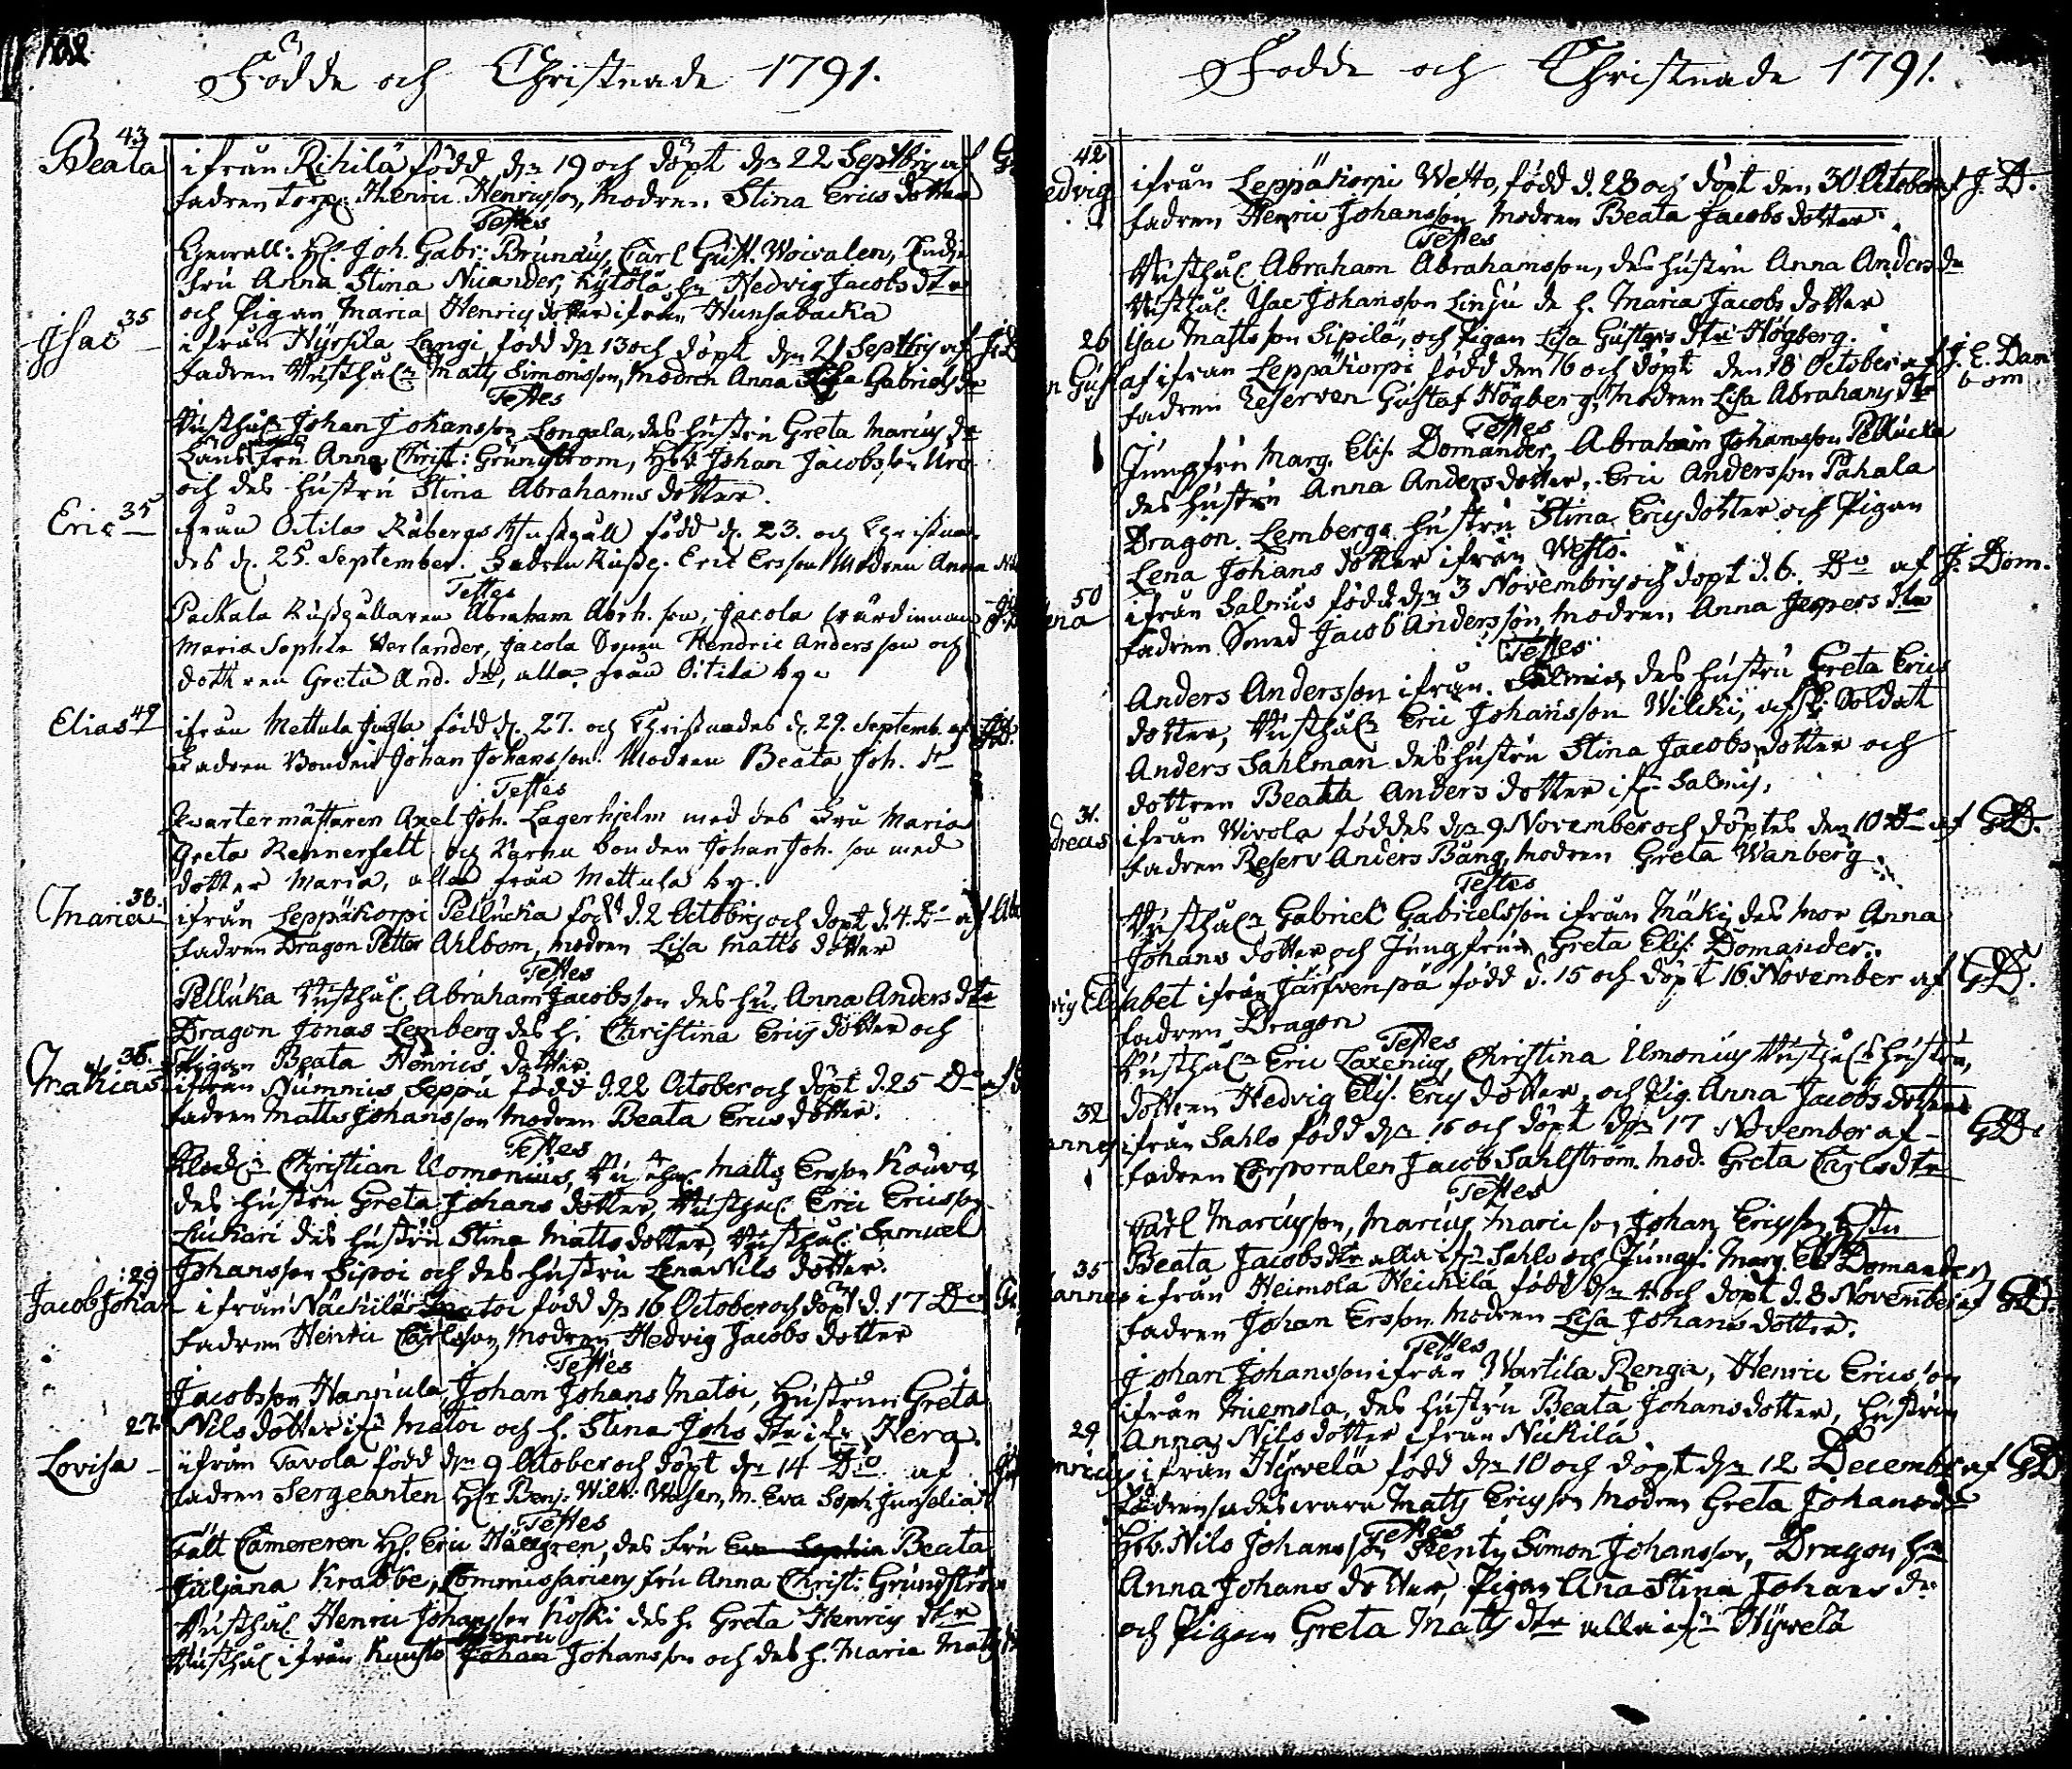 102
Födde och Christnade 1791.
43
Beata ifrån Rihilä född dn 19 och döpt dn 22 Septbris af
fadren torp. Henric Henricsson, Modren Stina Erics dotter
Testes
Joh. Gabr: Brunaus, Carl Gust. Woivalen,
fru Anna Stina Nicander, Kytölä hu Hedvig Jacobs dtr
och Pigan Maria Henrics dotter ifrån Hunsabacka
35
Isac ifrån Hyrsilä Langi född dn 13 och döpt dn 21 Septbris af
fadren Rusthåln Matts Simonsson, Modren Anna Lisa Gabriels dr
Testes
Rusthåln Johan Johansson Longala, des hustru Greta Marcus dr
Läns fru Anna Christ: Grundstrom, Johan Jacobsson
och des hustru Stina Abrahams dotter.
35
Eric ifrån Oitila Råbergs född d. 23. och Christna-
des d. 25. September. Fadren Eric Ersson Modren Anna
Testes
Packala Abraham Abrh. son, Jacola wärdinnan
Maria Sophia Verlander, Jacola Hendric Andersson och
dottren Greta And. dtr, alla från Oitila by.
49
Elias ifrån Mettula född d. 27. och Christnades d. 29. Septemb. af
Fadren Bonden Johan Johansson. Modren Beata Joh. dr
Testes
Qvartermästaren Axel Joh. Lagerhjelm med des Fru Maria
Greta Rennerfelt och bonden Johan Joh. son med
dotter Maria, alla från Mettula by.
38.
Maria ifrån Leppäkorpi Pellucka född d. 2 Octobris och döpt d. 4. Do af
fadren Dragon Petter Ahlbom, modren Lisa Matts dotter
Testes
Pelluka Rusthål. Abraham Jacobsson des hu. Anna Anders dtr
Dragon Jonas Lemberg des h. Christina Erics dotter och
Pigan Beata Henrics dotter.
36.
Mathias ifrån Nummis Seppä född d. 22 October och döpt d. 25 Do af
fadren Matts Johansson modren Beata Erics dotter.
Testes
Christian Uomonius, Matts Ersson Kouva
des hustru Greta Johans dotter, Rusthål. Eric Ericsson
Luckari des hustru Stina Matts dotter, Rusthål. Samuel
Johansson Sipoi och des hustru Lena Nils dotter.
29
Jacob Johan ifrån Näckilä Matoi född dn 16 October och döpt d. 17 Do
fadren Henric Carlsson, Modren Hedvig Jacobs dotter
Testes
Jacobsson Hannula, Johan Johans Matoi, Hustrun Greta
Nils dotter ifr Matoi och h. Stina Johs dtr ifr Hera.
27.
Lovisa ifrån Tavola född dn 9 October och döpt dn 14 Do af
fadren Sergeanten Hr Benj. Wilh: Wasen, M. Eva Soph. Junselia
Testes
Fält Camereren Hr Eric Hällgren, des fru Eva Sophia Beata
Juliana Krabbe, Commissariens fru Anna Christ: Grundström
Rusthål Henric Johansson Koski des h. Greta Henrics dtr
Henric
Rusthål ifrån Johan Johansson och des h. Maria Matts
Födde och Christnade 1791.
42
edvig ifrån Leppäkorpi Wetto, född d. 28 och döpt den 30 October af J. D.
fadren Henric Johansson Modren Beata Jacobs dotter.
Testes
Rusthål Abraham Abrahamsson, des hustru Anna Anders dr
Rusthål. Isac Johansson Linju de h. Maria Jacobs dotter
Isac Mattsson Sipilä, och Pigan Lisa Gustavs dtr Högberg.
26
n Gustaf ifrån Leppäkorpi född den 16 och döpt den 18 October af J. E. Dam
bom
fadren Reserven Gustaf Högberg, Modren Lisa Abrahams dtr
Testes
Jungfru Marg. Elis. Domander, Abraham Johansson Pellucka
des hustru Anna Anders dotter, Eric Andersson Pahala
Dragon Lembergs hustru Stina Erics dotter och Pigan
Lena Johans dotter ifrån Wetto.
50
ena ifrån Salmis född dn 3 Novembris och döpt d. 6. Do af J. Dom.
fadren Smed Jacob Andersson, Modren Anna Jespers dtr
Testes
Anders Andersson ifrån Salmis, des hustru Greta Erics
dotter, Rusthåln Eric Johansson Wilcki, afsk. Soldat
Anders Sahlman des hustru Stina Jacobs dotter och
dottren Beata Anders dotter ifr Salmis.
31.
dreas ifrån Wivola föddes dn 9 November och döptes den 10 Do af GD.
fadren Reserv Anders Bång, modren Greta Wanberg
Testes
Rusthåln Gabriel Gabrielsson ifrån Mäki, des Mor Anna
Johans dotter och Jungfrun Greta Elis. Domander.
vig Elisabet ifrån Järfvenpä född d. 15 och döpt 16 November af GD.
fadren Dragon
Testes
Rusthåln Eric Laxenius, Christina Ulmonius Rusthåls hustru,
dottren Hedvig Elis. Erics dotter, och Pig. Anna Jacobs dotter
32
annes ifrån Sahlo född dn 16 och döpt dn 17 November af GD.
fadren Corporalen Jacob Sahlström. Mod. Greta Carls dtr
Testes
Carl Marcusson, Marcus Marcisson, Johan Ericsson Hstu
Beata Jacobs dtr alla ifr Sahlo och Jungf: Marg. Elis Domander
35
annes ifrån Heimola Heickilä född dn 4 och döpt d. 8 November af GD.
fadren Johan Ersson Modren Lisa Johans dotter.
Testes
Johan Johansson ifrån Wartila Renga, Henric Ericsson
ifrån des hustru Beata Johans dotter, hustrun
Anna Nils dotter ifrån Nickilä
29
enricus ifrån Hyvelä född dn 10 och döpt dn 12 December af GD
Matts Ericsson Modren Greta Johans dr
Testes
Nils Johansson Simon Johansson, Dragon hu
Anna Johans dotter, Pigan Ana Stina Johans dr
och Pigan Greta Matts dtr alla ifrn Hyvelä